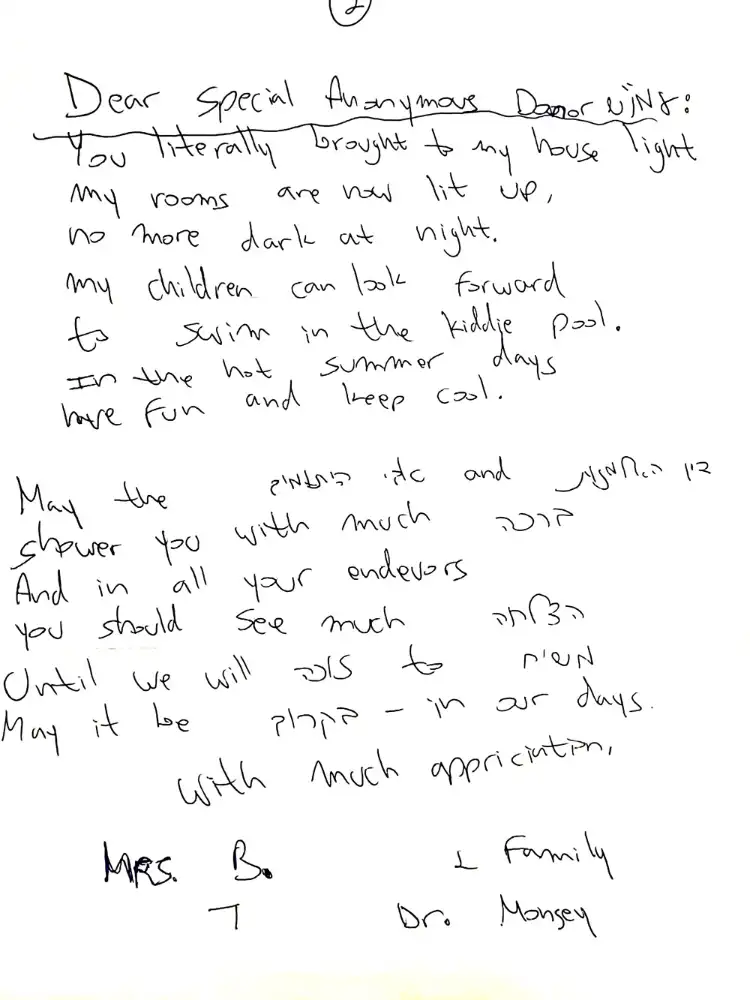 2
Dear Special Anonymous Donor שיחי':
You literally brought to my house light
my rooms are now lit up,
no more dark at night.
my children can look forward
to swim in the kiddie pool.
In the hot summer days
have fun and keep cool.
May the אבי היתומים and דיין האלמנות
shower you with much ברכה
And in all your endevors
you should see much הצלחה
Until we will זוכה to משיח
May it be בקרוב - in our days.
With much appriciation,
Mrs. B. + Family
7 Dr. Monsey